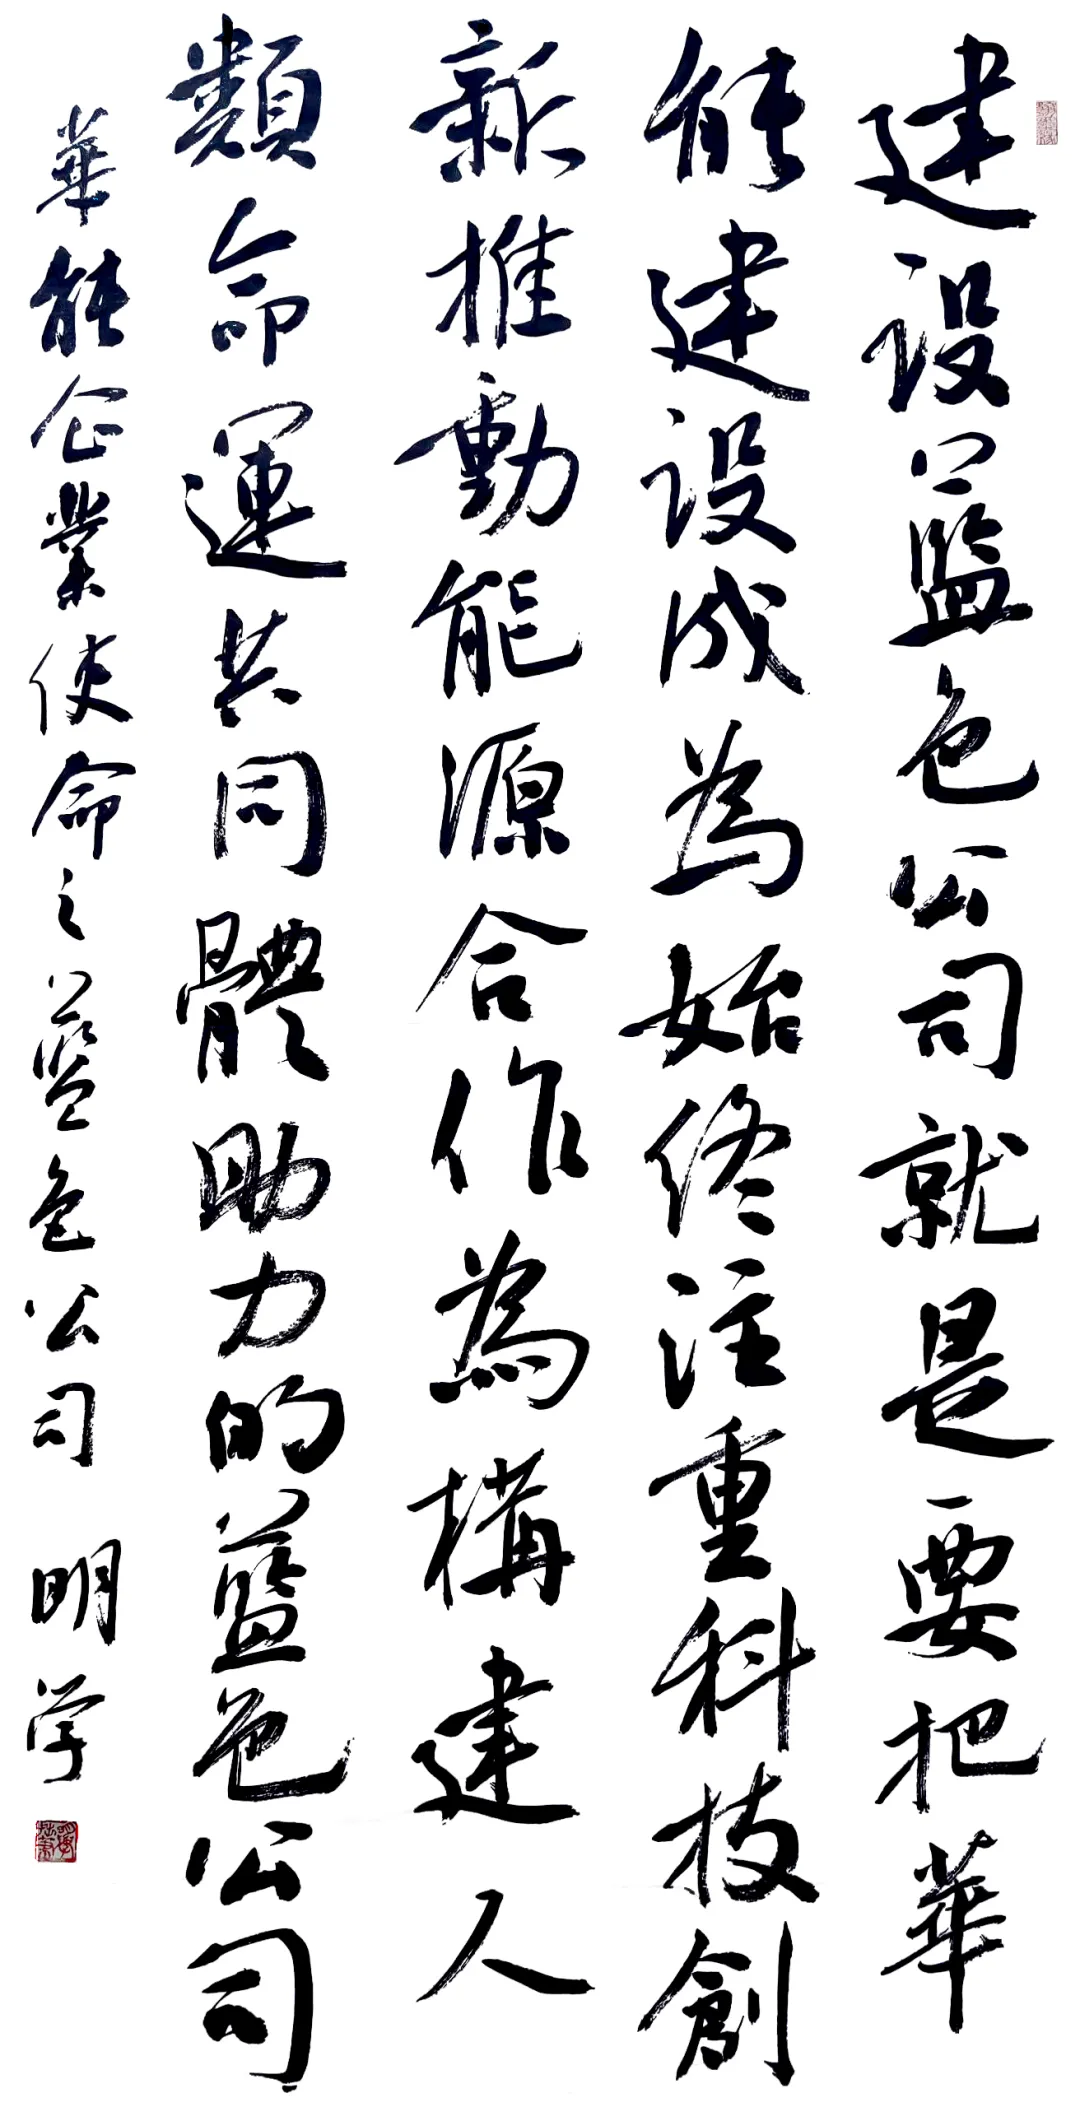 建设藍色公司就是要把華
能建设成為始终注重科技創
新推動能源合作為構建人
類命運共同體助力的藍色公司
華能企業使命之藍色公司 明学